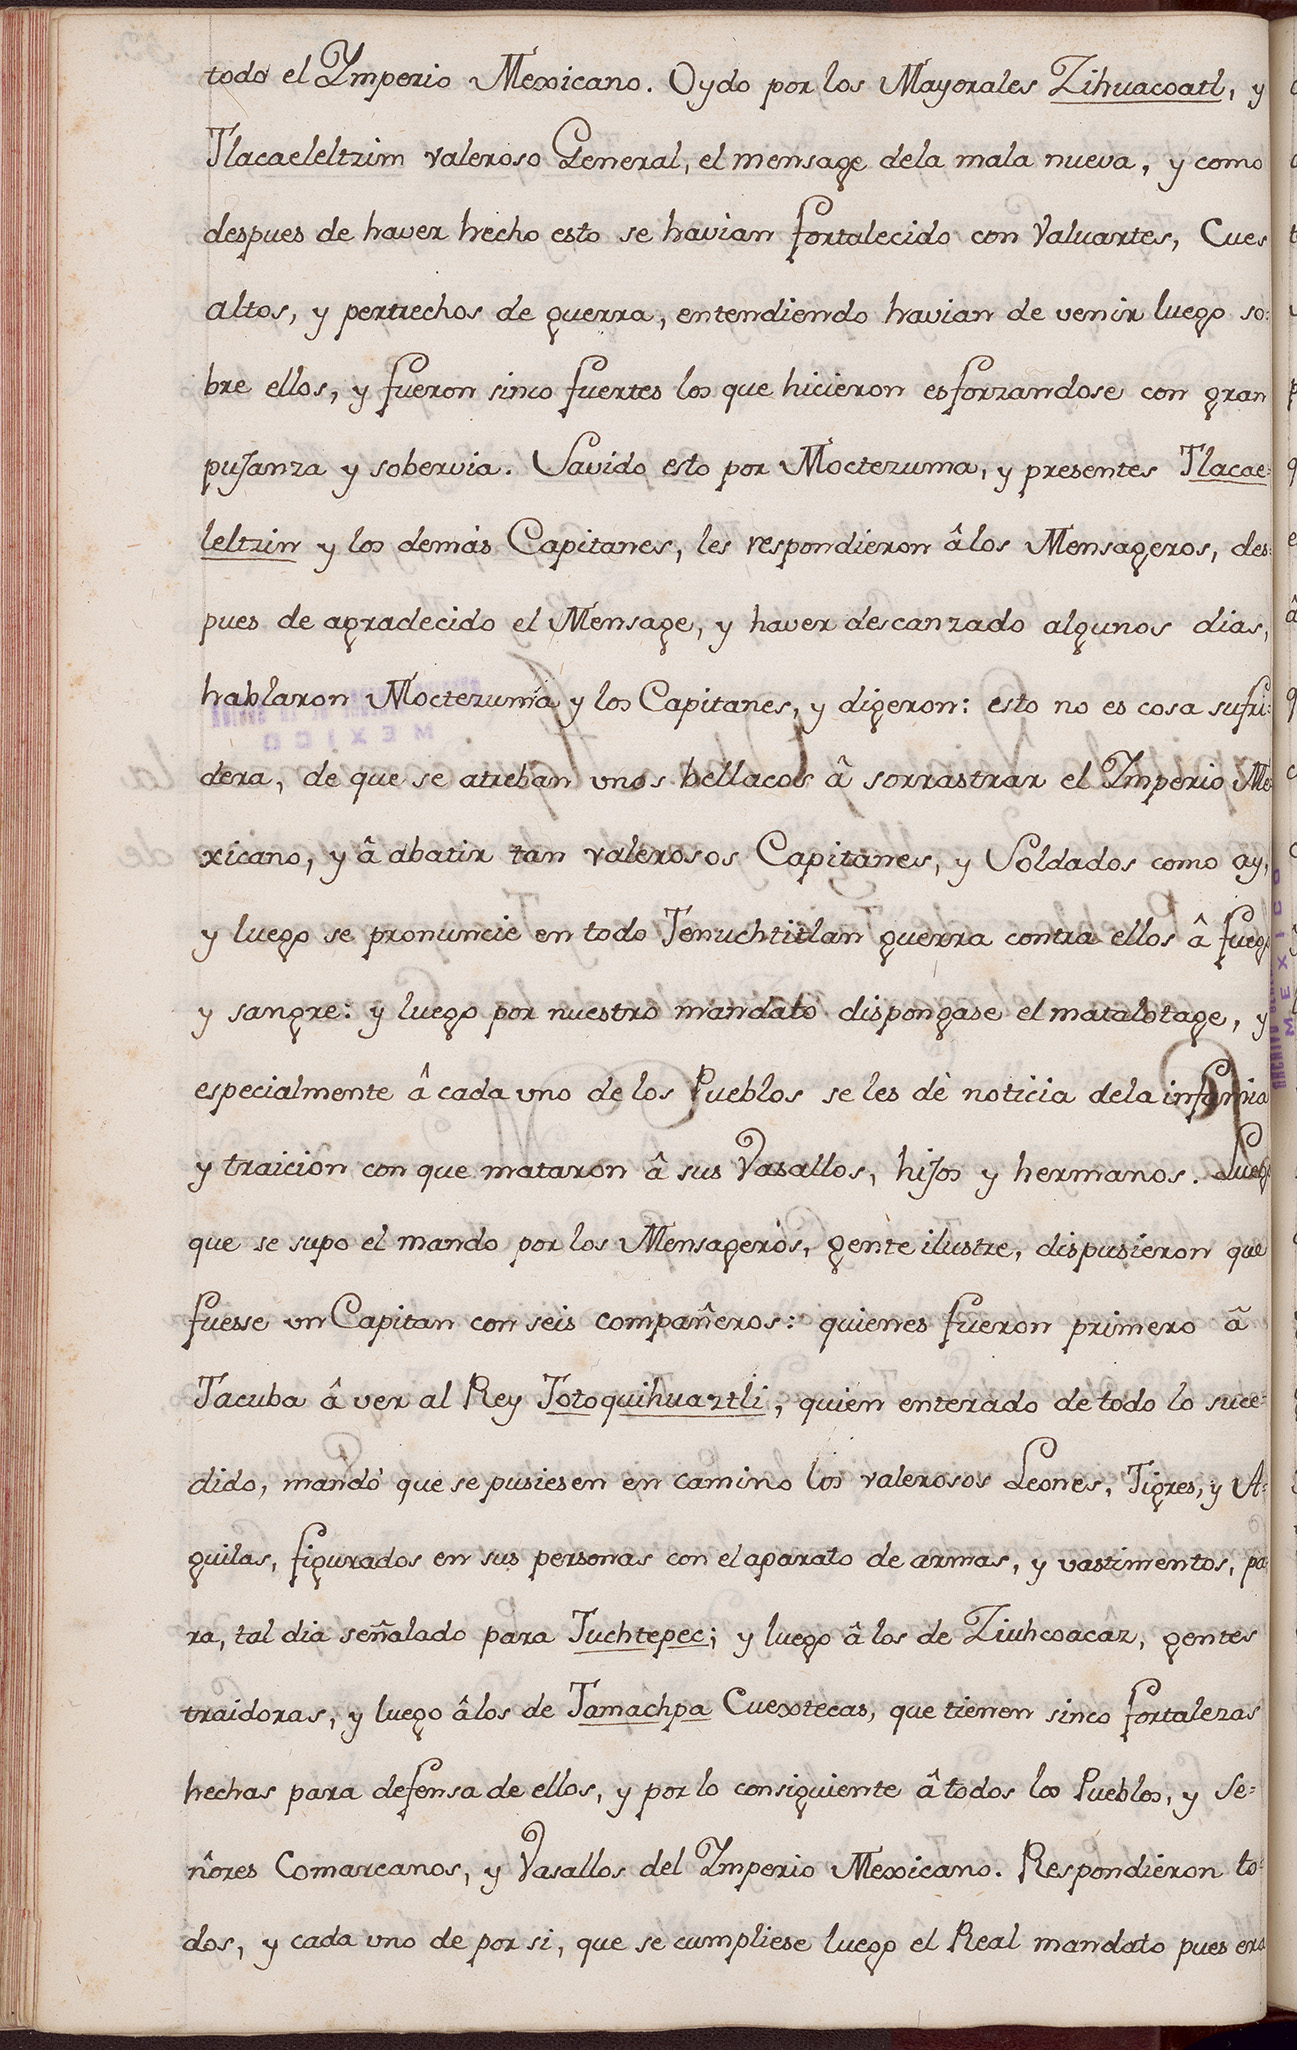 todo el Ymperio Mexicano. Oydo por los Mayorales Zihuacoatl, y
Tlacaeleltzim valeroso General, el mensage dela mala nueva, y como
despues de haver hecho esto se havian fortalecido con Valuartes, Cues
altos, y pertrechos de guerra, entendiendo havian de venir luego so=
bre ellos, y fueron sinco fuertes los que hicieron esforzandose con gran
pujanza y sobervia. Savido esto por Moctezuma, y presentes Tlacae=
leltzin y los demás Capitanes, les respondieron âlos Mensageros, des=
pues de agradecido el Mensage, y haver descanzado algunos dias,
hablaron Moctezuma y los Capitanes, y digeron: esto no es cosa sufri=
dera, de que se atreban unos bellacos â sorrastrar el Ymperio Me
xicano, y â abatir tan valerosos Capitanes, y Soldados como ay,
y luego se pronuncie en todo Tenuchtitlan guerra contra ellos â fuego
y sangre: y luego por nuestro mandato dispongase el matalotage, y
especialmente â cada uno de los Pueblos se les dè noticia dela infamia
y traicion con que mataron â sus Vasallos, hijos y hermanos. Luego
que se supo el mando por los Mensageros, gente ilustre, dispusieron que
fuesse un Capitan con seis compañeros: quienes fueron primero â
Tacuba â ver al Rey Totoquihuaztli, quien enterado de todo lo suce=
dido, mandó que se pusiesen en camino los valerosos Leones, Tigres, y A=
guilas, figurados en sus personas con el aparato de armas, y vastimentos, pa
ra, tal dia señalado para Tuchtepec; y luego â los de Ziuhcoacâz, gentes
traidoras, y luego âlos de Tamachpa Cuextecas, que tienen sinco fortalezas
hechas para defensa de ellos, y por lo consiguiente â todos los Pueblos, y Se=
ñores Comarcanos, y Vasallos del Ymperio Mexicano. Respondieron to=
dos, y cada uno de por si, que se cumpliese luego el Real mandato pues era
MEXICO